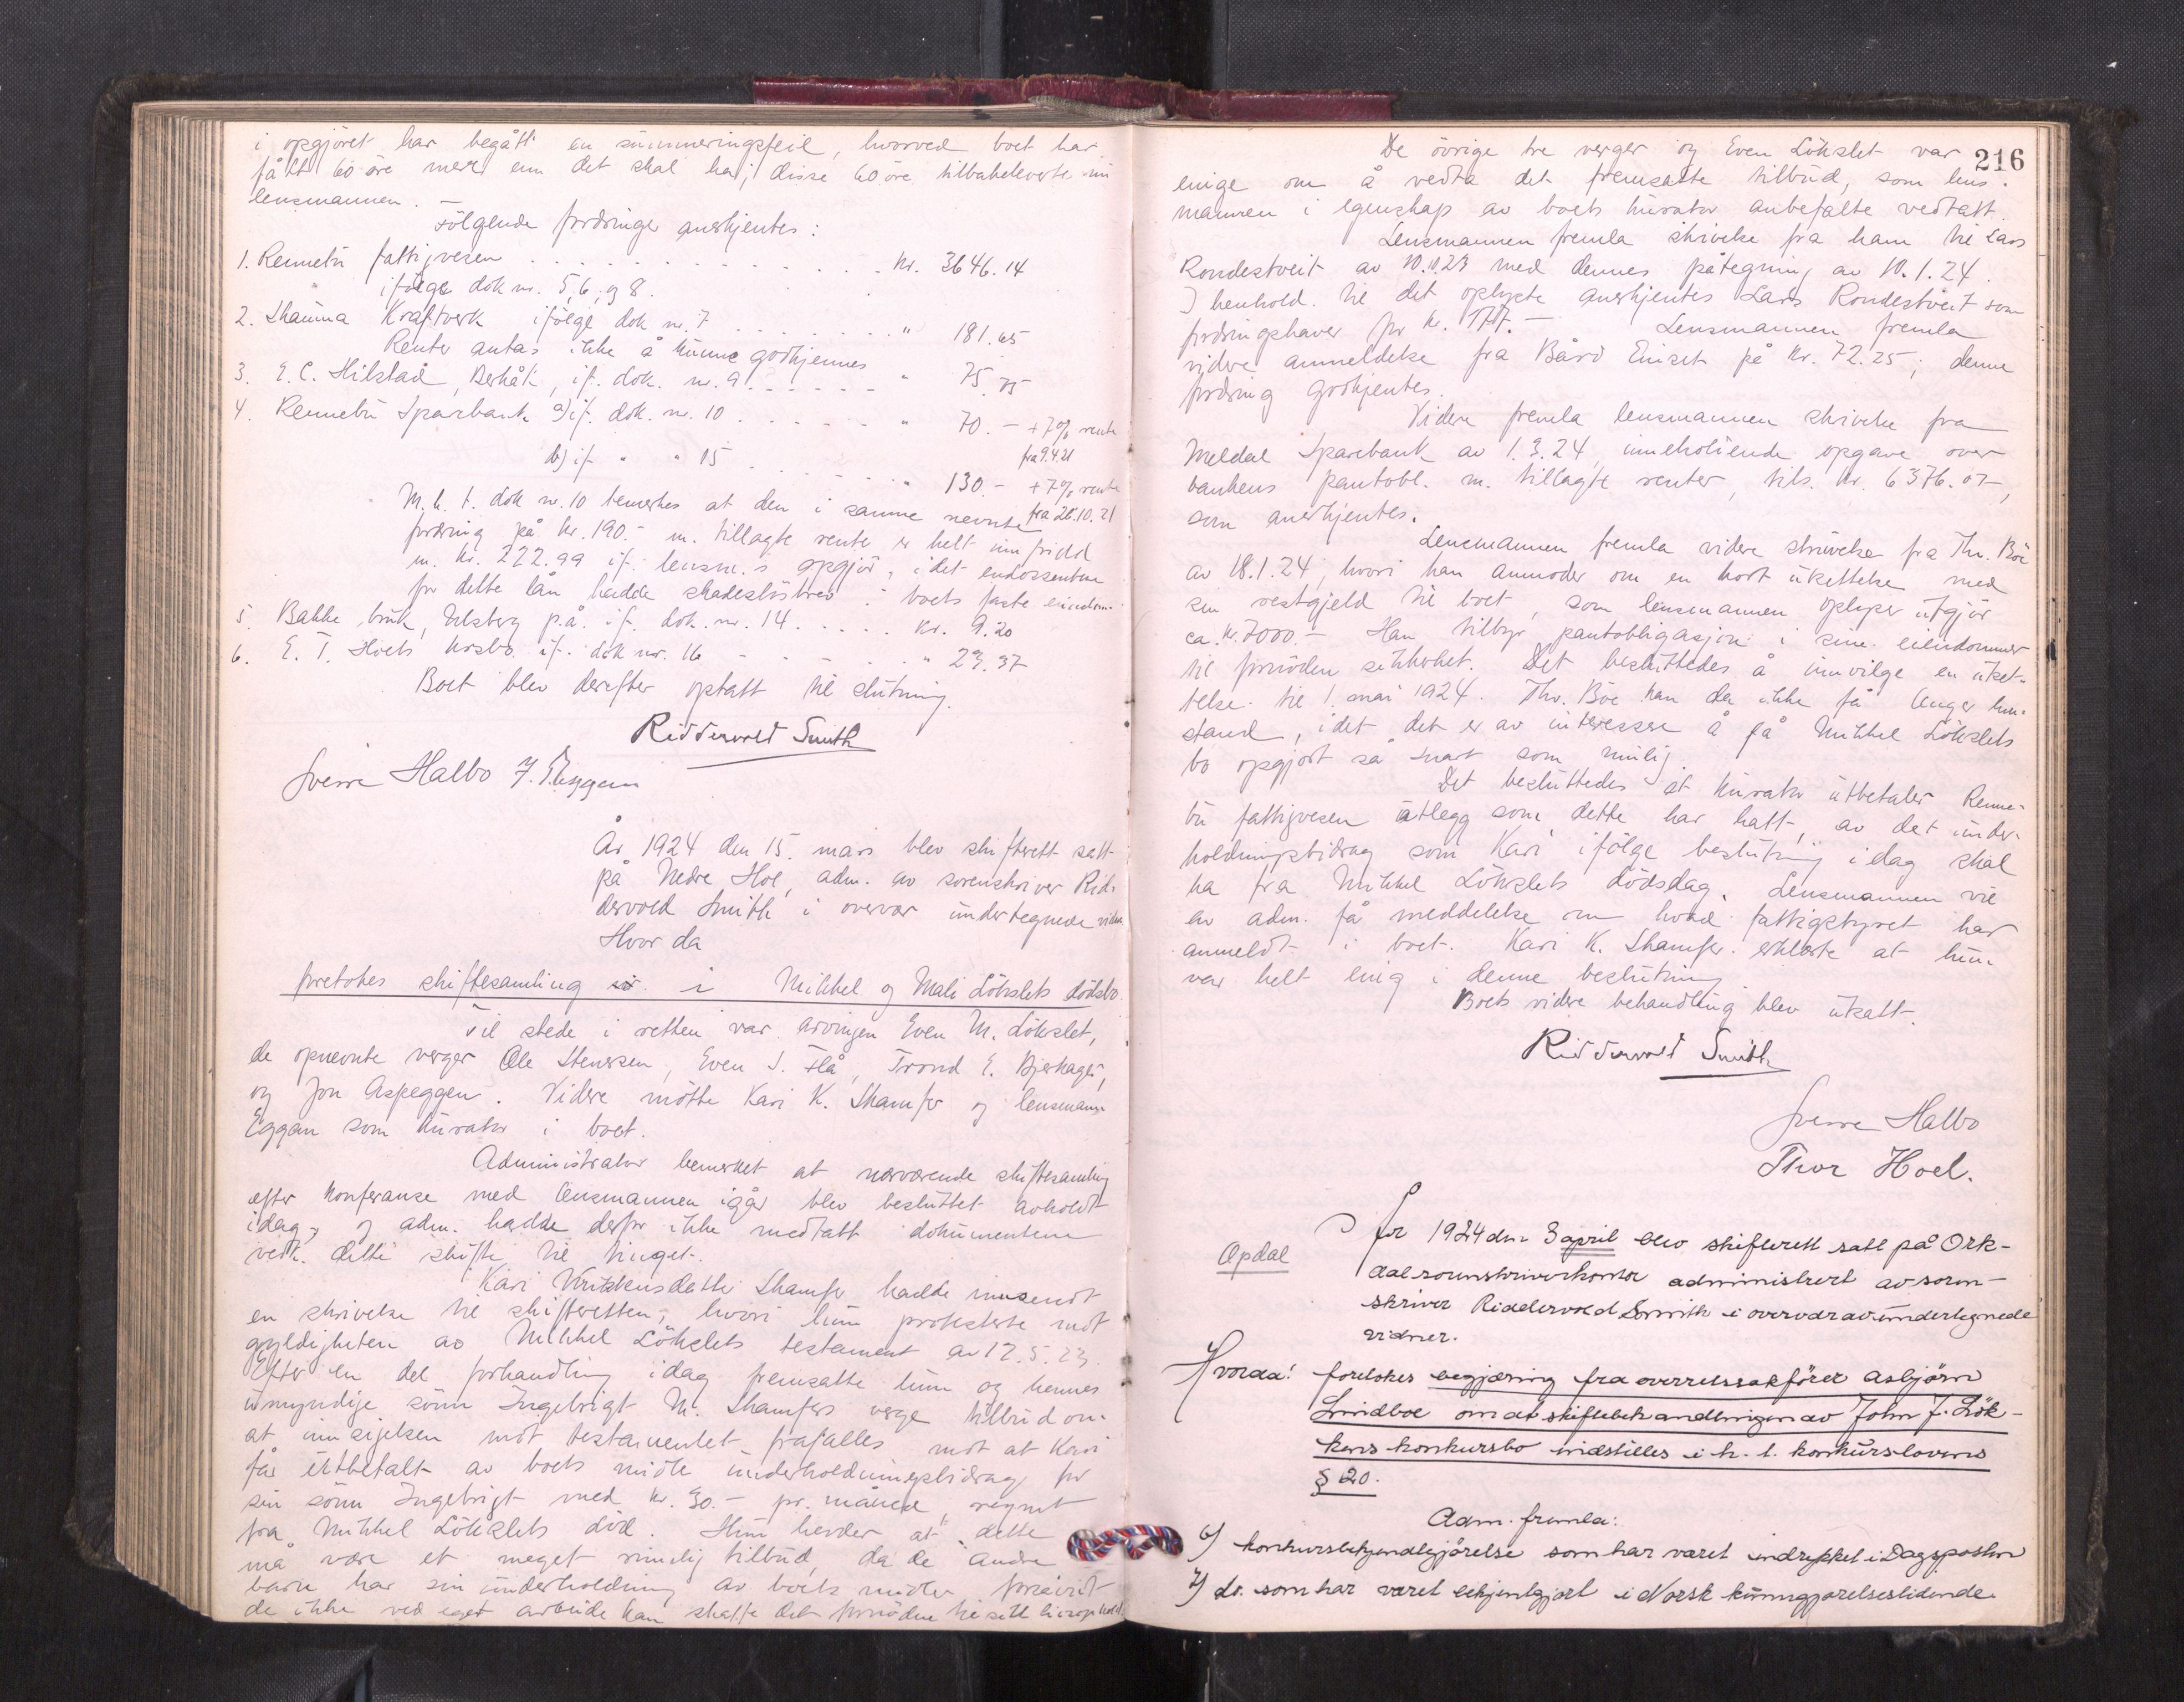 i opgjöret har begått en summeringsfeil, hvorved boet har
fått 60 öre mere enn det skal ha; disse 60 öre tilbakeleverte nu
lensmannen.
Følgende fordringer anerkjentes:
1. Rennebu fattigvesen . . . . . . . . . kr. 3646.14
ifølge dok nr. 5, 6, og 8.
2. Skauma Kraftverk ifølge dok nr. 7 . . . . . . " 181.65
Renter antas ikke å kunne godkjennes
3. E. C. Hilstad, Berkåk, if. dok. nr. 9. - - - - - " 75.75
4. Rennebu Sparebank a) if. dok. nr. 10 . . . . . . " 70.- + 7% rente
fra 9.4.21
b) if. " " 15 . . . . . . " 130.- + 7% rente
fra 28.10.21
M. h. t. dok nr. 10 bemerkes at den i samme nevnte
fordring på kr. 190.- m. tillagte rente er helt innfridd
m. kr. 222.99 if. lensm.s opgjör, idet endossentene
for dette lån hadde skadeslösbrev i boets faste eiendom.
5. Bakke bruk, Ulsberg p.å. if. dok. nr. 14 . . . . . kr. 9.20
6. E. T. Hoels if. dok nr. 16 - - - - - " 23.37
Boet blev derefter optatt til slutning.
Riddervold Smith
Sverre Halbo J. Eggan
År 1924 den 15. mars blev skifterett satt
på Nedre Hol, adm. av sorenskriver Rid-
dervold Smith i overvær undertegnede vidner
Hvor da
foretokes skiftesamling i Mikkel og Mali Lökslets dödsbo.
Til stede i retten var arvingen Even M. Lökslet,
de opnevnte verger Ole Stensen, Even S. Flå, Trond E. Bjerkager,
og Jon Aspeggen. Videre mötte Kari K. Skamfer og lensmann
Eggan som kurator i boet.
Administrator bemerket at nærværende skiftesamling
efter konferanse med lensmannen igår blev besluttet avholdt
idag, og adm. hadde derfor ikke medtatt dokumentene
vedk. dette skifte til tinget.
Kari Skamfer hadde innsendt
en skrivelse til skifteretten, hvori hun protesterte mot
gyldigheten av Mikkel Lökslets testament av 12.5.23.
Efter en del forhandling idag fremsatte hun og hennes
umyndige sönn Ingebrigt M. Skamfers verge tilbud om
at innsigelsen mot testamentet frafalles mot at Kari
får utbetalt av boets midle underholdningsbidrag for
sin sönn Ingebrigt med kr. 30.- pr. måned, regnet
fra Mikkel Lökslets död. Hun hevder at dette
må være et meget rimelig tilbud, da de andre
barn har sin underholdning av boets midler forsåvidt
de ikke ved eget arbeide kan skaffe det fornödne til sitt livsophold.
216
De övrige tre verger og Even Lökslet var
enige om å vedta det fremsatte tilbud, som lens-
mannen i egenskap av boets kurator anbefalte vedtatt.
Lensmannen fremla skrivelse fra ham til Lars
Rondestveit av 10.1.23 med dennes påtegning av 10.1.24.
I henhold til det oplyste anerkjentes Lars Rondestveit som
fordringshaver for kr. 177.- Lensmannen fremla
videre anmeldelse fra Bård Eniset på kr. 72.25; denne
fordring godkjentes.
Videre fremla lensmannen skrivelse fra
Meldal Sparebank av 1.3.24, inneholdende opgave over
bankens pantobl. m. tillagte renter, tils. kr. 6376.07,
som anerkjentes.
Lensmannen fremla videre skrivelse fra Thv. Böe
av 18.1.24, hvori han anmoder om en kort utsettelse med
sin restgjeld til boet, som lensmannen oplyser utgjör
ca. kr. 7000.- Han tilbyr pantobligasjon i sine eiendommer
til fornöden sikkerhet. Det besluttedes å innvilge en utset-
telse til 1. mai 1924. Thv. Böe kan da ikke få lenger hen-
stand, idet det er av interesse å få Mikkel Lökslets
bo opgjort så snart som mulig.
Det besluttedes at kurator utbetaler Renne-
bu fattigvesen utlegg som dette har hatt, av det under-
holdningsbidrag som Kari ifölge beslutning idag skal
ha fra Mikkel Lökslets dödsdag. Lensmannen vil
av adm. få meddelelse om hvad fattigstyret har
anmeldt i boet. Kari K. Skamfer erklærte at hun
var helt enig i denne beslutning.
Boets videre behandling blev utsatt.
Riddervold Smith
Sverre Halbo
Thor Hoel.
Opdal
År 1924 den 3 april blev skifterett satt på Ork-
dal sorenskriverkontor administrert av soren-
skriver Riddervold Smith i overvær av undertegnede
vidner.
Hvorda! foretokes begjæring fra overretssakförer Asbjörn
Lindboe om at skiftebehandlingen av John J. Lök-
kens konkursbo indstilles i h. t. konkurslovens
§ 20.
Adm. fremla:
6) konkursbekjendtgjörelse som har været indrykket i Dagsposten
7) do. som har været bekjentgjort i Norsk kunngjörelsestidende